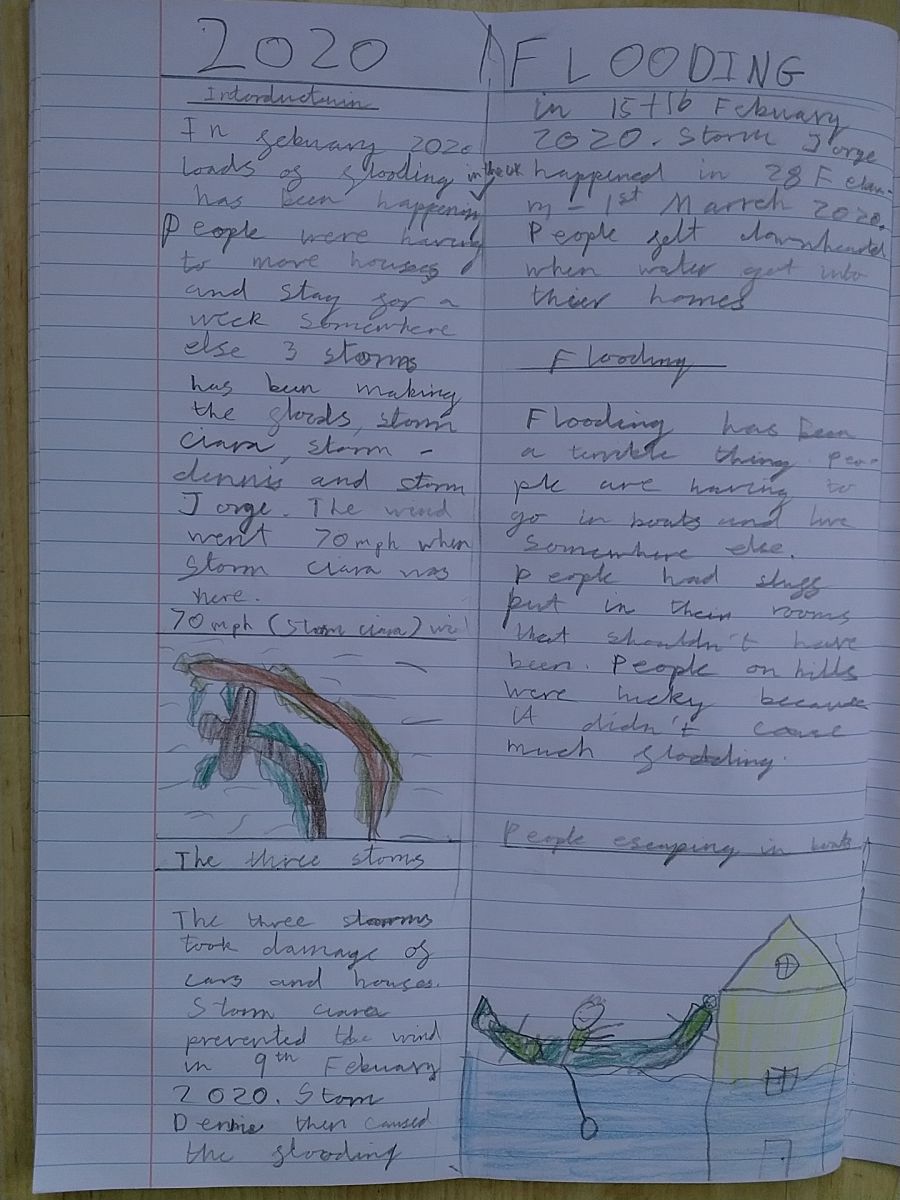 2020 FLOODING
Intorductuin
In febuary 2020
loads of flooding in the uk
has been happening
People were having
to move houses
and stay for a
week somewhere
else 3 storms
has been making
the floods, storm
ciara, storm -
dennis and storm
Jorge. The wind
went 70mph when
storm ciara was
here.
70mph (storm ciara)
The three stoms
The three storms
took damage of
cars and houses.
Storm ciara
prevented the wind
in 9th Febuary
2020. Stom
Dennis then caused
the flooding
in 15+16 Febuary
2020. Storm Jorge
happened in 28 Febua-
ry - 1st Marrch 2020.
People felt downhearted
when water got into
thier homes
Flooding
Flooding has been
a terrible thing peo-
ple are having to
go in boats and live
somewhere else.
People had stuff
put in their rooms
that shouldn't have
been. People on hills
were lucky because
it didn't cause
much flodding.
People escaping in boats